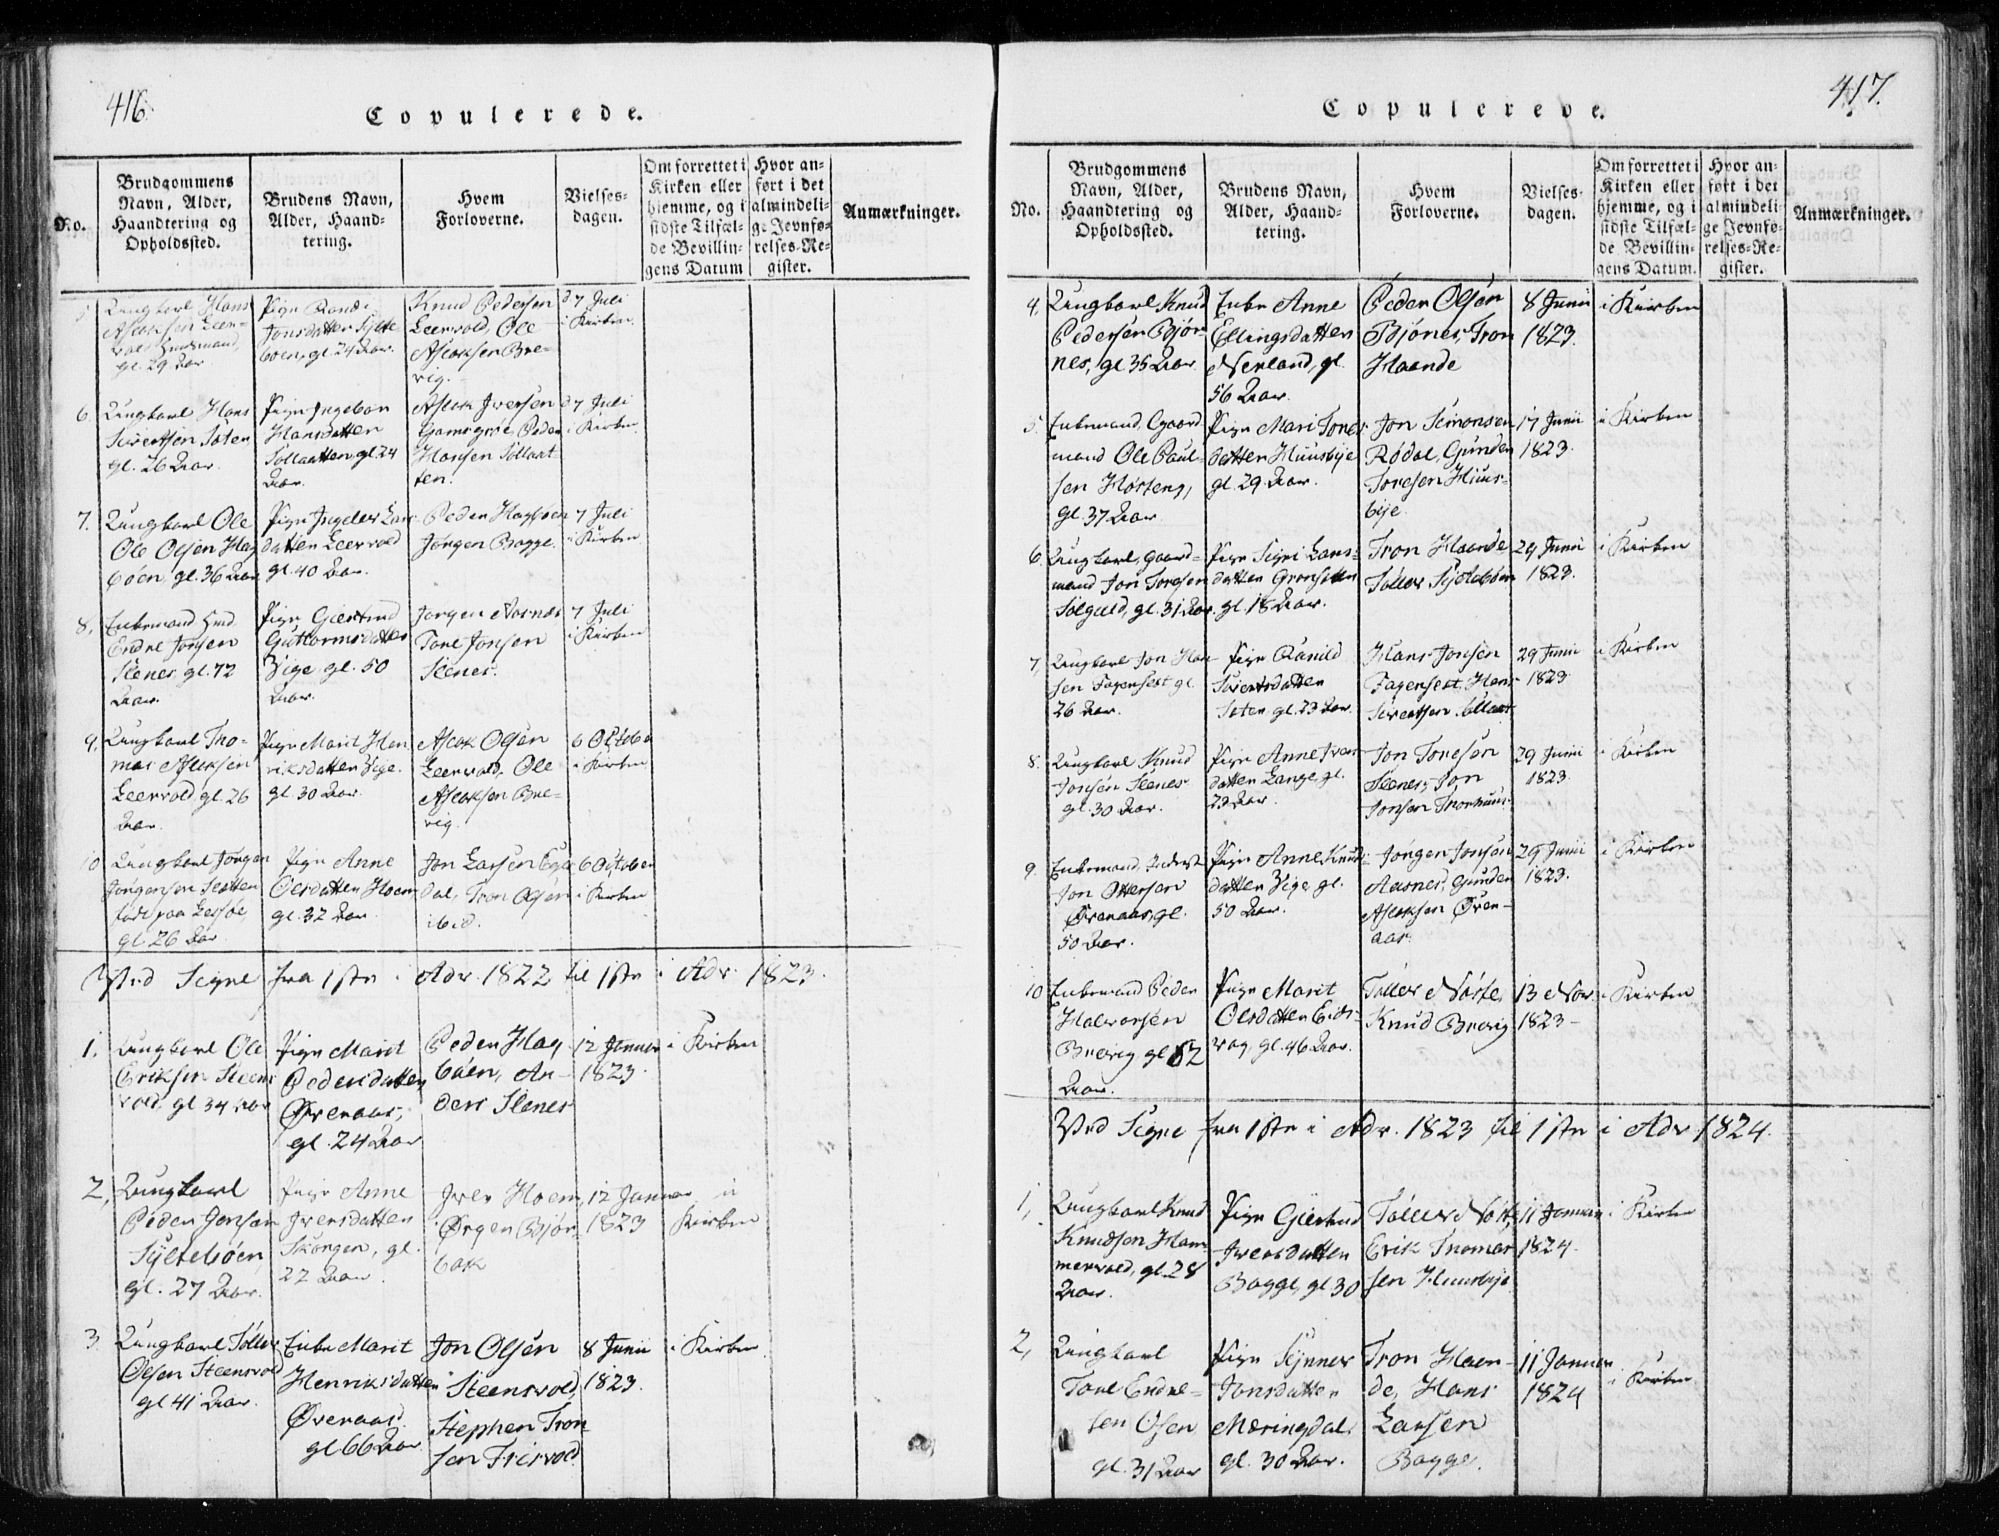 416.
Copulerede.
No.
Brudgommens
Navn, Alder,
Haandtering og
Opholdssted.
Brudens Navn,
Alder, Haand-
tering.
Hvem
Forloverne.
Vielses-
dagen.
Om forrettet i
Kirken eller
hjemme, og i
sidste Tilfæl-
de Bevillin-
gens Datum
Hvor an-
ført i det
almindeli-
ge Jevnfø-
relses-Re-
gister.
Anmærkninger.
Ungkarl Hans
Aslaksen Leer-
vold Huusmand,
gl. 29 Aar
Pige Randi
Jonsdatter Sylte
böen, gl. 24 Aar.
Knud Pedersen
Leervold, Ole
Aslaksen Bre-
vig.
d 7 Juli
i Kirken.
6
Ungkarl Hans
Sivertsen Säter
gl. 26 Aar.
Pige Ingebor
Hansdatter
Sollaatten gl. 24
Aar.
Aslak Iversen
Peder
Hansen Sollaat
ten.
d 7 Juli
i Kirken.
7.
Ungkarl Ole
Ole Olsen Hag
böen, gl. 36 Aar
Pige Lars
datter Leervold
gl. 40 Aar.
Peder Hagböen
Jörgen Bagge.
7 Juli
i Kirken
8,
Enkemand Hmd.
Endre Jonsen
Slenes gl. 72
Aar.
Pige Giertrud
Guttormsdatter
Vige gl. 50
Aar.
Jörgen Aasnæs
Tore Jonsen
Slenes.
7 Juli
i Kirken
9,
Ungkarl Tho-
mas Aslaksen
Leervold gl. 26
Aar.
Pige Marit Hen
riksdatter Vige.
gl. 30 Aar.
Aslak Olsen
Leervold, Ole
Aslaksen Bre-
vig.
6 October
i Kirken
10
Ungkarl Jörgen
Jörgensen
paa Lesföe
gl. 26 Aar.
Pige Anne
Olsdatter Hoem
gl. 32 Aar.
Jon Larsen Ege
dal, Tron Olsen
ibid.
6 October
i Kirken
Ved Segne fra 1ste i Adv. 1822 til 1ste i Adv. 1823.
1.
Ungkarl Ole
Eriksen Steens
vold. gl. 34 Aar
Pige Marit
Pedersdatter
Øveraas,
gl. 24 Aar
Peder Hag
böen, An-
ders Slenes
12 Januar
1823.
i Kirken
2,
Ungkarl
Peder Jonsen
Syltebøen
gl. 27 Aar.
Pige Anne
Iversdatter
Skorgen, gl.
22 Aar.
Iver Hoem,
Ørgen Bjør
bak
12 Januar
1823
i
Kirken
3.
Ungkarl Töller
Olsen Steensvold
gl 41 Aar.
Enke Marit
Henriksdatter
Øveraas.
gl 66 Aar
Jon Olsen
Steensvold,
Stephen Tron
sen Frisvold.
8 Junii
1823.
i Kirken
417.
Copulerede.
No.
Brudgommens
Navn, Alder,
Haandtering og
Opholdssted.
Brudens Navn,
Alder, Haand-
tering.
Hvem
Forloverne.
Vielses-
dagen.
Om forrettet i
Kirken eller
hjemme, og i
sidste Tilfæl-
de Bevillin-
gens Datum.
Hvor an-
ført i det
almindeli-
ge Jevnfø-
relses-Re-
gister.
Anmærkninger.
4,
Ungkarl Knud
Pedersen Björ
nes, gl 35 Aar
Enke Anne
Ellingsdatter
Nerland, gl.
56 Aar.
Peder Olsön
Bjönes, Tron
Haande
8 Junii
1823.
i Kirken
5.
Enkemand, Gaard
mand Ole Paul-
sen Horseng,
gl. 37 Aar
Pige Mari Tores
datter Huusbye
gl. 29 Aar.
Jon Simonsen
Rödal, Gunder
Toresen Huus-
bye.
17 Junii
1823.
i Kirken
6.
Ungkarl, Gaard-
mand Jon Toresen
Solguld, gl. 31 Aar.
Pige Sigri Lars-
datter Gronseter
gl. 18 Aar.
Tron Haande
Toller Sylteböen
29 Junii
1823.
i Kirken
7,
Ungkarl Jon Han
sen Fagerslet gl.
26 Aar.
Pige Ranild
Sivertsdatter
Säter gl. 23 Aar.
Hans Jonsen
Fagerslet, Hans
Sivertsen Sollaat
29 Junii
1823
i Kirken
8.
Ungkarl Knud
Jonsen Slenes
gl. 30 Aar.
Pige Anne Ivars
datter Lange gl.
23 Aar.
Jon Toresen
Slenes, Jon
Jonsen Tronhuus
29 Junii
1823.
i Kirken
9
Enkemand, Inderst
Jon Ottersen
Øveraas, gl.
50 Aar.
Pige Anne Knuds
datter Vige gl.
50 Aar.
Jörgen Jonsön
Aasnes, Gunder
Aslaksen Över-
aas.
29 Junii
1823.
i Kirken
10
Enkemand Peder
Halvorsen
Brevig gl 62
Aar.
Pige Marit
Olsdatter Eids
vog, gl. 46 Aar.
Töller Nöste,
Knud Brevig
13 Nov.
1823-
i Kirken
Ved Segne fra 1ste i Adv. 1823 til 1ste i Adv 1824.
1,
Ungkarl Knud
Knudsen Ham
mervold, gl. 28
Aar.
Pige Giertrud
Iversdatter
Bagge, gl 30
Töller Nöste,
Erik Thomas
sen Huusbye
11 Januar
1824.
i Kirken
2,
Ungkarl
Tore Endre-
sen Osen
gl. 31 Aar
Pige Synnev
Jonsdatter
Meringdal.
gl. 30 Aar.
Tron Haan-
de, Hans
Larsen
Bagge.
11 Januar
1824
i Kirken